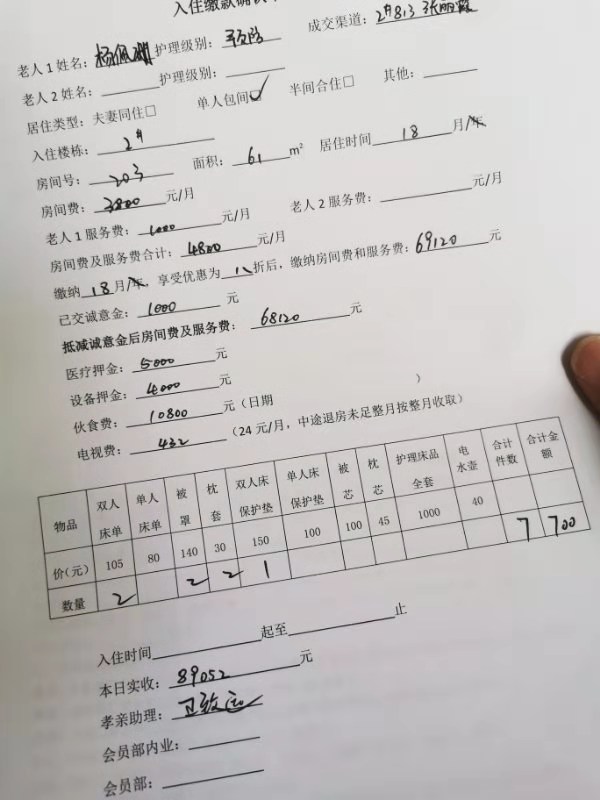 入住缴款确认
老人1姓名: 杨佩 护理级别: 成交渠道: 2#813 张丽霞
老人2姓名: 护理级别:
居住类型: 夫妻同住□ 单人包间☑ 半间合住□ 其他:
入住楼栋: 2#
房间号: 203 面积: 61 m² 居住时间 18 月/年
房间费: 3800 元/月
老人1服务费: 1000 元/月 老人2服务费: 元/月
房间费及服务费合计: 4800 元/月
缴纳 18 月/年, 享受优惠为 八 折后, 缴纳房间费和服务费: 69120 元
已交诚意金: 1000 元
抵减诚意金后房间费及服务费: 68120 元
医疗押金: 5000 元
设备押金: 4000 元
伙食费: 10800 元(日期 )
电视费: 432 (24元/月,中途退房未足整月按整月收取)
物品 双人床单 单人床单 被罩 枕套 双人床保护垫 单人床保护垫 被芯 枕芯 护理床品全套 电水壶 合计件数 合计金额
价(元) 105 80 140 30 150 100 100 45 1000 40
数量 2 2 2 1 7 700
入住时间 起至 止
本日实收: 89052 元
孝亲助理: 卫致远
会员部内业:
会员部: